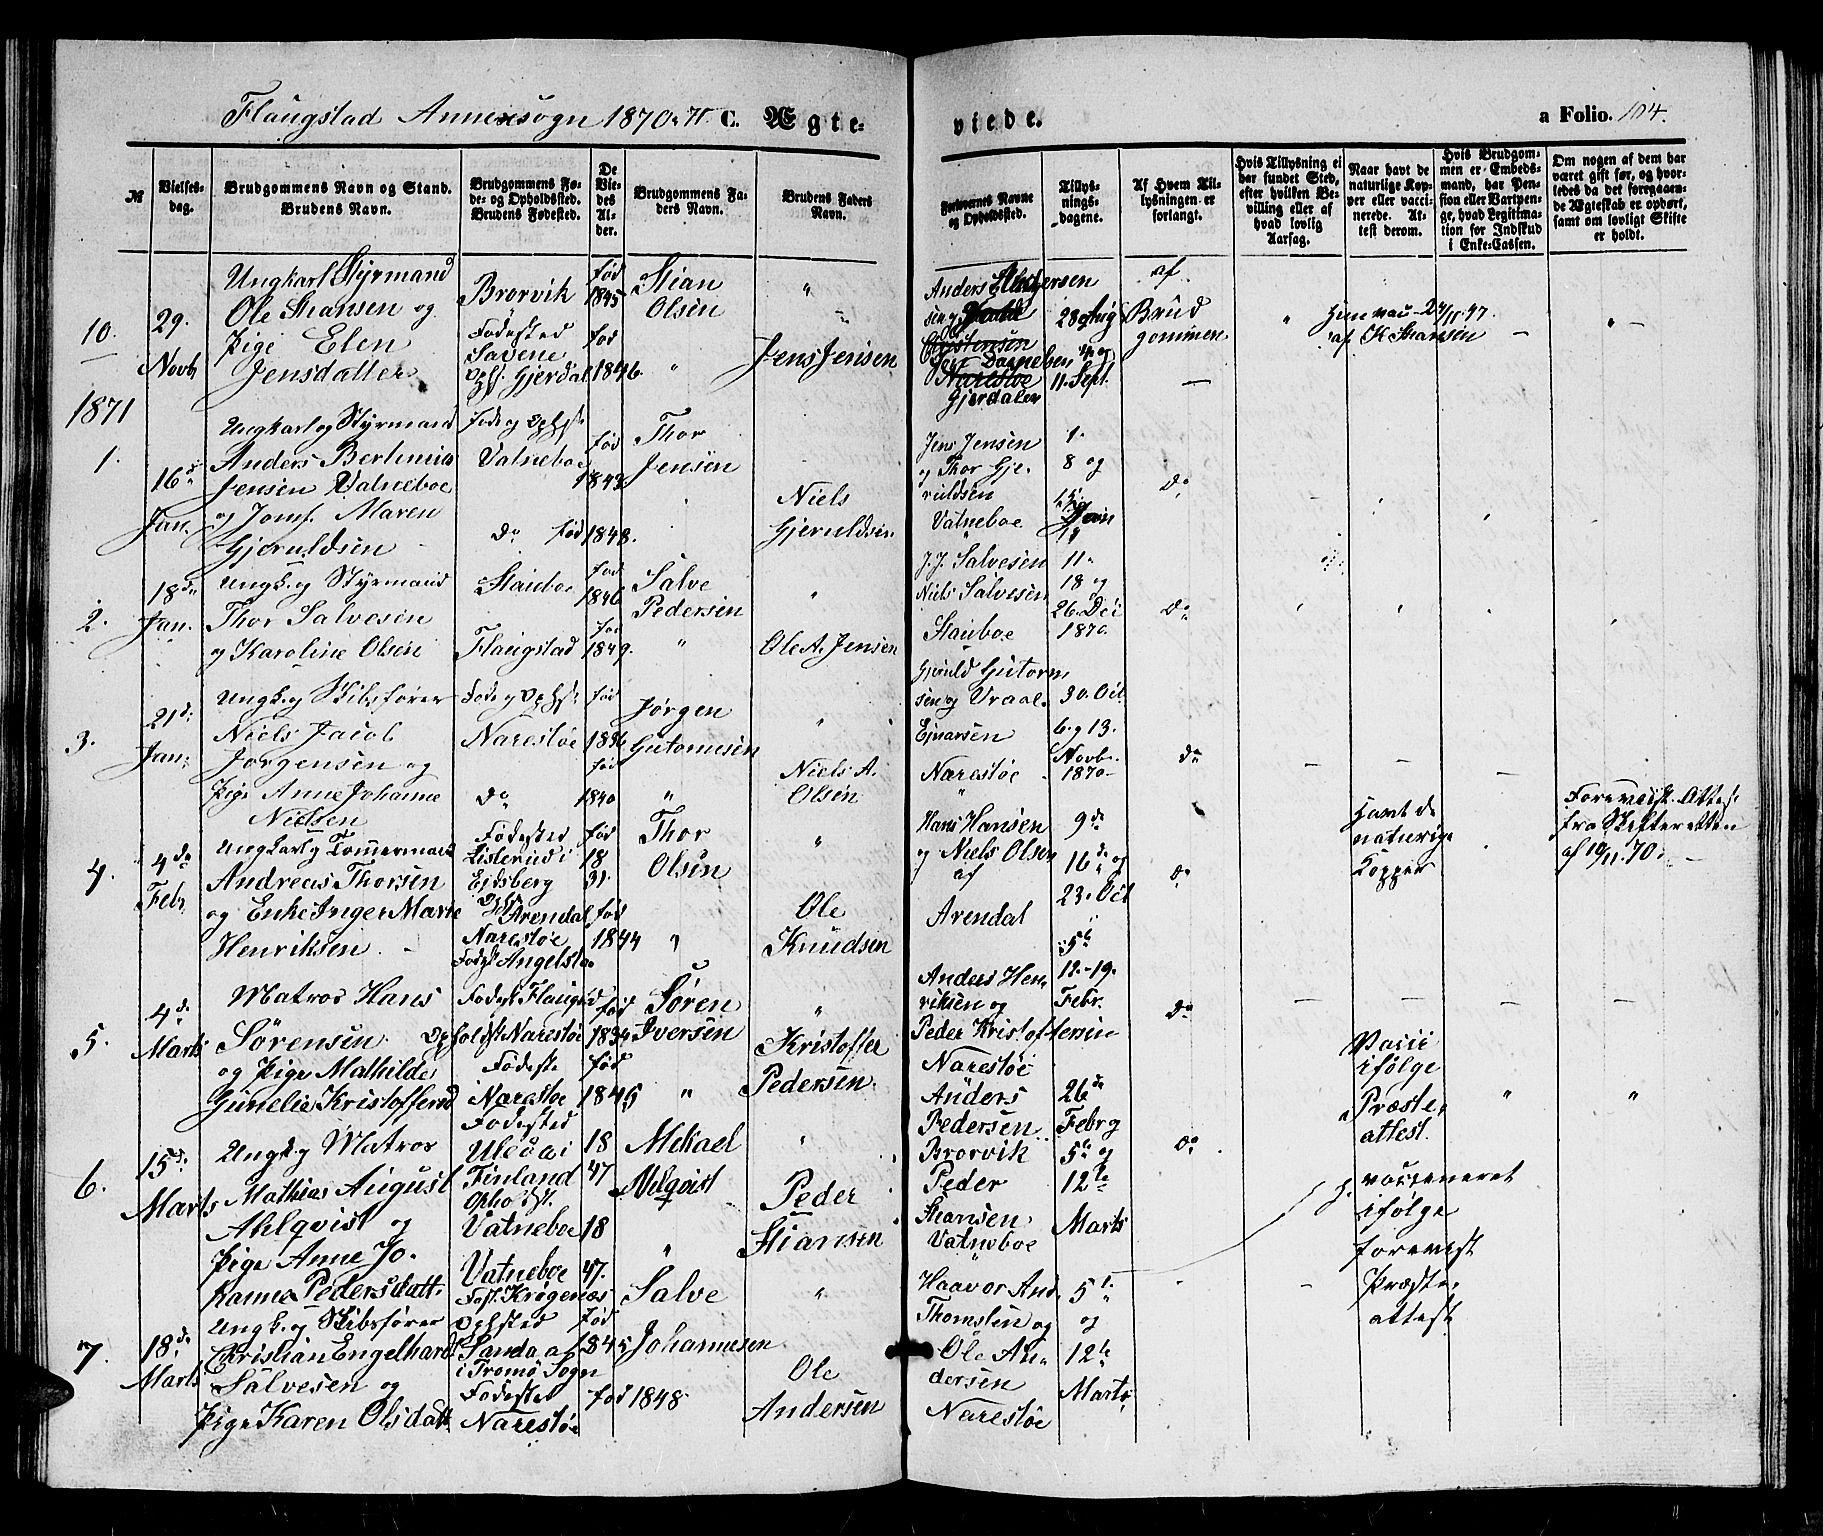 Flaugstad Annexsogn 1870-71. C. Ægte-
viede.
a Folio. 104.
№
Vielses-
dag.
Brudgommens Navn og Stand.
Brudens Navn.
Brudgommens Fø-
de- og Opholdsted.
Brudens Fødested.
De
Vie-
des
Al-
der.
Brudgommens Fa-
ders Navn.
Brudens Faders
Navn.
Forlovernes Navne
og Opholdsted.
Tillys-
nings-
dagene.
Af Hvem Til-
lysningen er
forlangt.
Hvis Tillysning ei
har fundet Sted,
efter hvilken Be-
villing eller af
hvad lovlig
Aarsag.
Naar havt de
naturlige Kop-
per eller vacci-
nerede. At-
test derom.
Hvis Brudgom-
men er Embeds-
mand, har Pen-
sion eller Vartpen-
ge, hvad Legitima-
tion for Indskud
i Enke-Cassen.
Om nogen af dem har
været gift før, og hvor-
ledes da det foregaaen-
de Ægteskab er ophørt,
samt om lovligt Skifte
er holdt.
10.
29.
Novb
Ungkarl Styrmand
Ole Stiansen og
Pige Elen
Jensdatter
Brørvik
Fødested
Savene
Ophs. Gjerdal
fød
1845
fød
1846.
Stian
Olsen
"
Jens Jensen
Anders
sen og
Danielsen
Narestøe
Gjerdalen
28 Aug
11. Sept.
af
Brud
gommen
Hun vac. 24/11.47
af K Hansen
1871
1.
16d
Jan.
Ungkarl og Styrmand
Anders Berlinius
Jensen Vatneboe
og Jomf. Maren
Gjeruldsen
Føde og Ophst
Vatneboe
do
fød
1843
fød 1848.
Thor
Jensen
Niels
Gjeruldsen
Jens Jensen
og Thor Gje-
ruldsen
Vatneboe
1.
8 og
15
Jan
Do
2.
18de
Jan.
Ungk. og Styrmand
Thor Salvesen
og Karoline Olsen
Stauboe
Flaugstad
fød
1846
fød
1849.
Salve
Pedersen
"
Ole A. Jensen
J. J. Salvesen
Niels Salvesen
Stauboe
11.
18 og
26. Dec
1870.
Do
3.
21d.
Jan.
Ungk. og Skibsfører
Niels Jacob
Jørgensen og
Pige Anne Johanne
Nielsen
Føde og Ophst.
Narestøe
do
fød
1836
fød
1840
Jørgen
Gutomesen
"
Niels A.
Olsen
Gjeruld Gutorm
sen og Vraal
Ejnarsen
Narestøe
30. Oct
6. og 13.
Novb.
1870
do
4.
4de
Febr.
Ungkarl og Tømmermand
Andreas Thorsen
og Enke Inger Marie
Henriksen
Fødested
Listerud i
Ejdsberg
Ophst Arendal
Narestøe
Fødest Angelsta
fød
18
31.
fød
1844
Thor
Olsen
"
Ole
Knudsen
Hans Hansen
og Niels Olsen
af
Arendal
9de
16de og
23. Oct
do
Havt de
naturige
Kopper
Forevist Attest
fra Skifteretten
af 19/11.70.
5.
4de
Marts
Matros Hans
Sørensen
og Pige Mathilde
Gunelie Kristoffersd
Fødest Flaugsd
opholdst Narestøe
Fødeste
Narestøe
fød
1834
fød
1845
Søren
Iversen
"
Kristoffer
Pedersen.
Anders Hen,
riksen og
Peder Kristoffersen
Narestøe
5te
12.-19.
Febr.
Do
Vacci
ifølge
Præste,
attest.
6.
15de
Marts
Ungk. og Matros
Mathias August
Ahlqvist og
Pige Anne Jo.
hanne Pedersdatt.
Fødested
Uleåa i
Finland
Opholdst.
Vatneboe
Vatneboe
18
47
18
47.
Mikael
Ahlqvist
"
Peder
Stiansen
Anders
Pedersen
Brørvik
Peder
Stiansen
Vatneboe
26de
Febr og
5te og
12te
Marts
Do
vaccineret
ifølge
forevist
Præste,
attest
7.
18de
Marts
Ungk. og Skibsfører
Christian Engelhardt
Salvesen og
Pige Karen Olsdatt
Føst. Krøgenæs
Ophsted
Sandaa
i Tromø Sogn
Fødested
Narestøe
fød
1845
fød 1848
Salve
Johannesen
Ole
Andersen
Haavor And,
Thomslen og
Ole An-
dersen
Narestøe
5te
og
12te
Marts